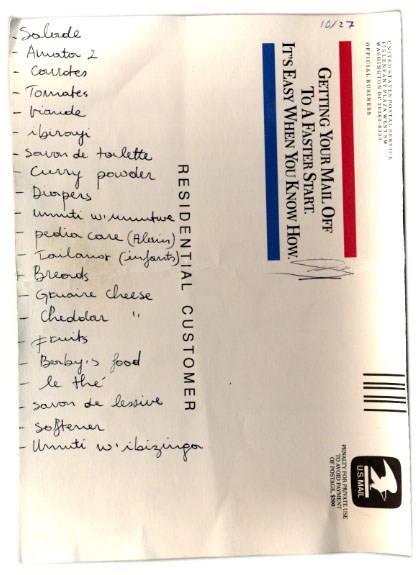 - Salade
- Amator 2
- Carottes
- Tomates
- Viande
- ibirayi
- Savon de toilette
- Curry powder
- Diapers
- umuti w'umutwe
- pedia care (Alain)
- Tailanor (infants)
- Breads
- Gruaire cheese
- Cheddar "
- fruits
- Berby's food
- le thé
- savon de lessive
- Softener
- Umuti w'ibizinga
RESIDENTIAL CUSTOMER
10/27
UNITED STATES POSTAL SERVICE
475 L'ENFANT PLAZA WEST SW
WASHINGTON DC 20260-
OFFICIAL BUSINESS
GETTING YOUR MAIL OFF
TO A FASTER START.
IT'S EASY WHEN YOU KNOW HOW.
U.S. MAIL
PENALTY FOR PRIVATE USE
TO AVOID PAYMENT
OF POSTAGE, $300